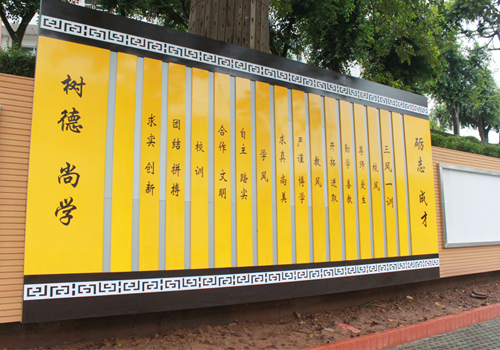 砺志 成才
三风一训
校风
尊师 爱生
勤学 善教
开拓 进取
教风
严谨 博学
求真 尚美
学风
自主 踏实
合作 文明
校训
团结 拼搏
求实 创新
树德 尚学